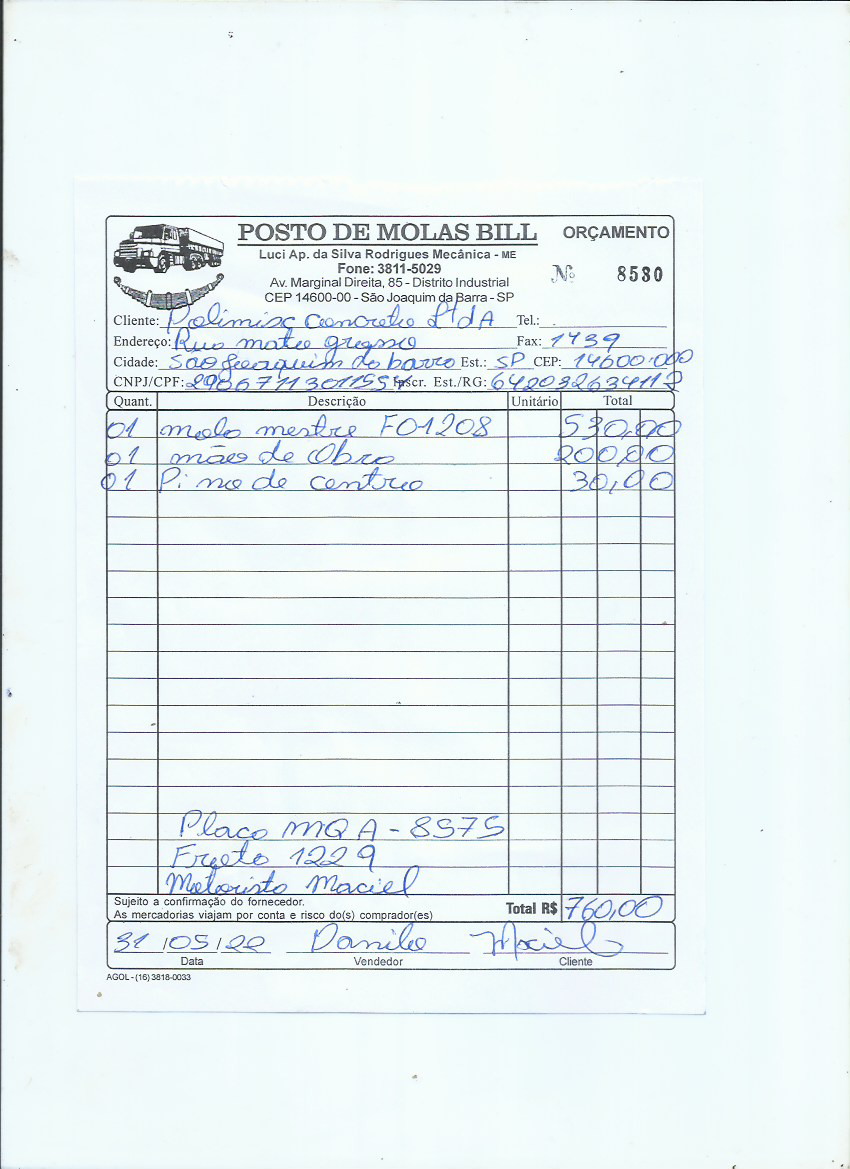 POSTO DE MOLAS BILL
ORÇAMENTO
Luci Ap. da Silva Rodrigues Mecânica - ME
Fone: 3811-5029
Av. Marginal Direita, 85 - Distrito Industrial
CEP 14600-00 - São Joaquim da Barra - SP
Nº 8530
Cliente: Polimisc Concreto LtdA Tel.:
Endereço: Rua mato grosso Fax: 1439
Cidade: São Joaquim da barra Est.: SP CEP: 14600-000
CNPJ/CPF: Inscr. Est./RG: 642032634112
Quant. Descrição Unitário Total
01 mola mestre FO1208 530,00
01 mão de Obra 200,00
01 Pino de centro 30,00
Placa MQA-8575
Frota 1229
Motorista Maciel
Sujeito a confirmação do fornecedor.
As mercadorias viajam por conta e risco do(s) comprador(es)
Total R$ 760,00
31/05/22 Danilo Maciel
Data Vendedor Cliente
AGOL - (16) 3818-0033